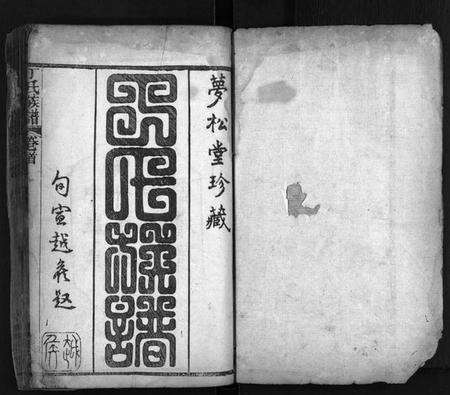 夢松堂珍藏
氏族譜
旬宣越彦題
氏族譜 卷首